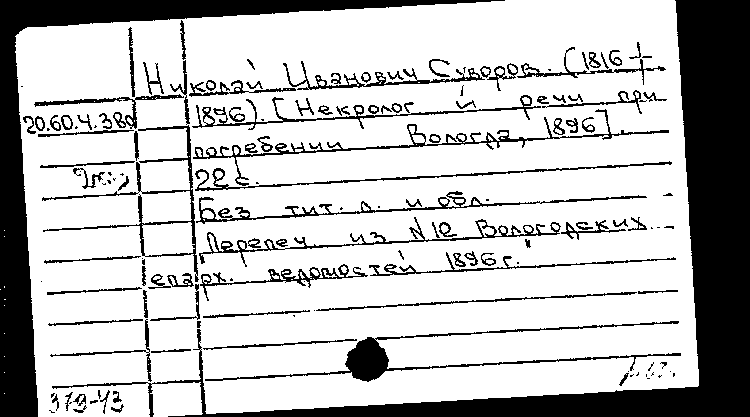 Николай Иванович Суворов. (1816 +
20.60.4.380 1896). [Некролог и речи при
погребении Вологда, 1896].
22 с.
Без тит. л. и обл.
"Перепеч из №10 Вологодских
епарх. ведомостей 1896 г."
379-43